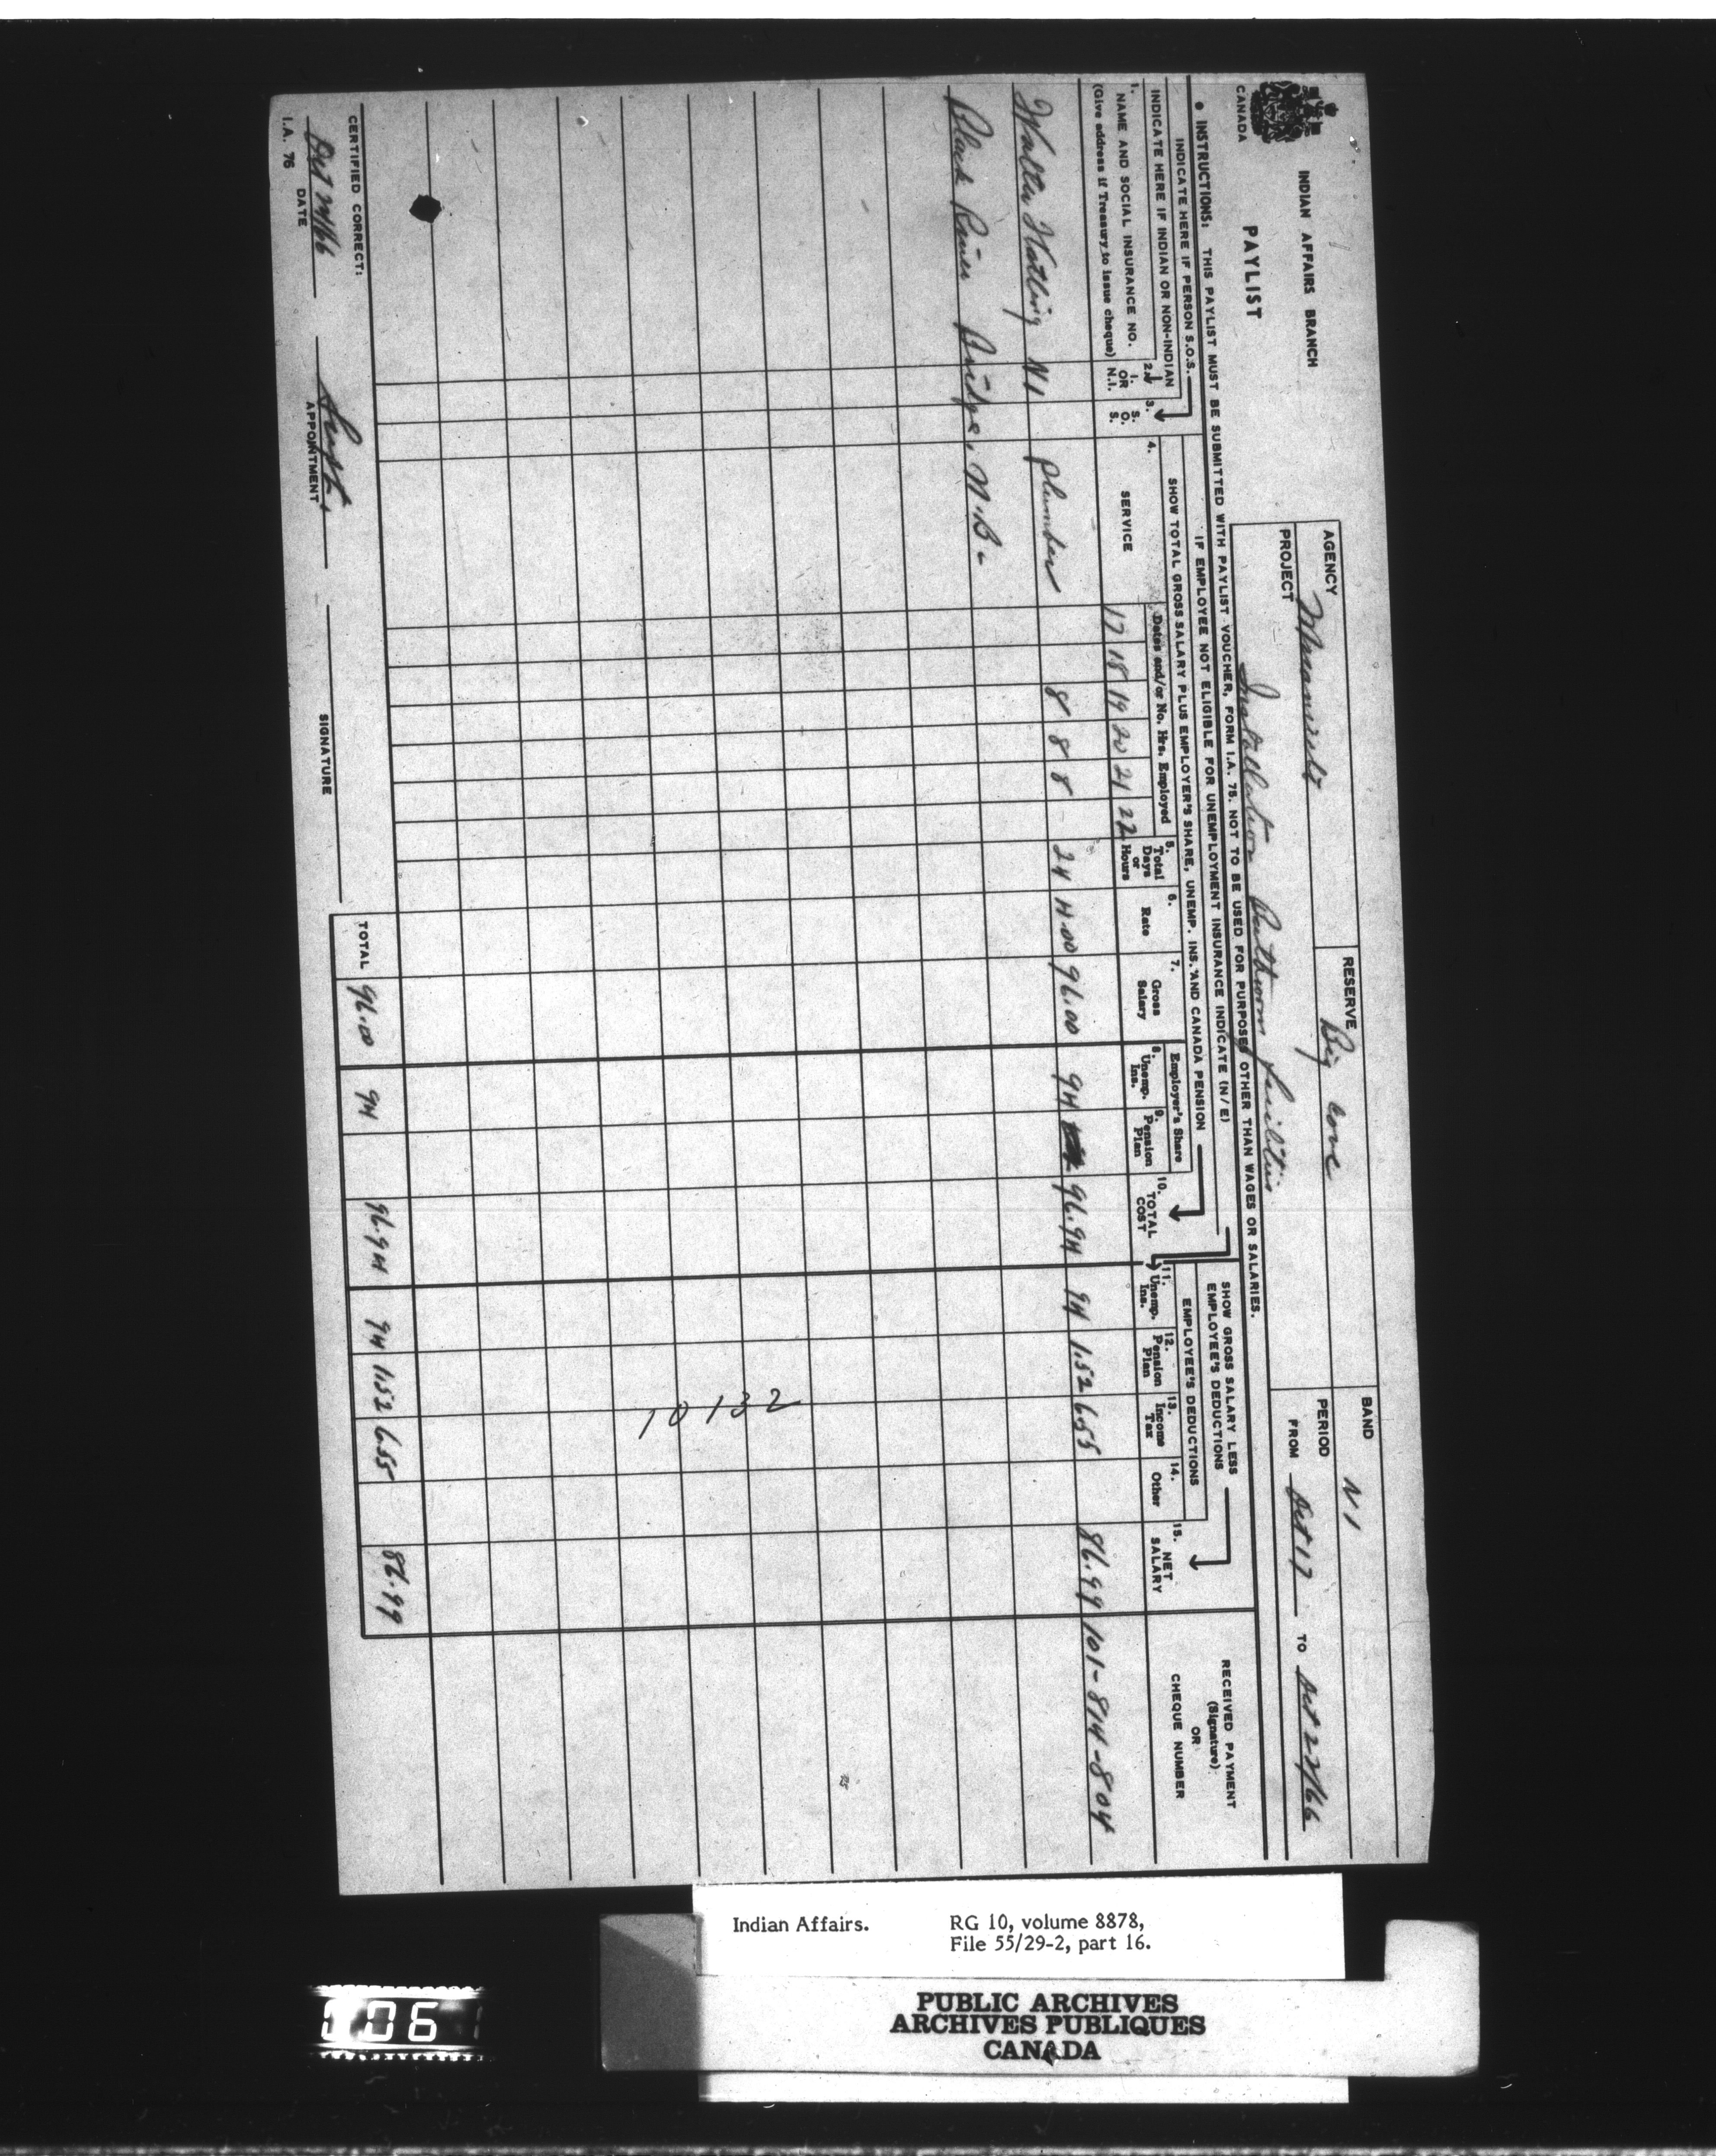 CANADA
INDIAN AFFAIRS BRANCH
PAYLIST
AGENCY Miramichi
RESERVE Big Cove
BAND N1
PROJECT Installation Bathroom facilities
PERIOD
FROM Oct 17 TO Oct 22/66
● INSTRUCTIONS: THIS PAYLIST MUST BE SUBMITTED WITH PAYLIST VOUCHER, FORM I.A. 75. NOT TO BE USED FOR PURPOSES OTHER THAN WAGES OR SALARIES.
IF EMPLOYEE NOT ELIGIBLE FOR UNEMPLOYMENT INSURANCE INDICATE (N/E)
INDICATE HERE IF PERSON S.O.S.
SHOW TOTAL GROSS SALARY PLUS EMPLOYER'S SHARE, UNEMP. INS. AND CANADA PENSION
SHOW GROSS SALARY LESS
EMPLOYEE'S DEDUCTIONS
INDICATE HERE IF INDIAN OR NON-INDIAN
1. NAME AND SOCIAL INSURANCE NO.
(Give address if Treasury to issue cheque)
2. I. OR N.I.
3. S. O. S.
4. SERVICE
Dates and/or No. Hrs. Employed
17 18 19 20 21 22
5. Total Days or Hours
6. Rate
7. Gross Salary
Employer's Share
8. Unemp. Ins.
9. Pension Plan
10. TOTAL COST
EMPLOYEE'S DEDUCTIONS
11. Unemp. Ins.
12. Pension Plan
13. Income Tax
14. Other
15. NET SALARY
RECEIVED PAYMENT
(Signature)
OR
CHEQUE NUMBER
Walter N1 plumber 8 8 8 24 4.00 96.00 94 96.94 94 1.52 6.55 86.99 101-814-804
Black River Bridge, N.B.
10132
TOTAL 96.00 94 96.94 94 1.52 6.55 86.99
CERTIFIED CORRECT:
Supt.
DATE
APPOINTMENT
SIGNATURE
I.A. 76
Indian Affairs.
RG 10, volume 8878,
File 55/29-2, part 16.
PUBLIC ARCHIVES
ARCHIVES PUBLIQUES
CANADA